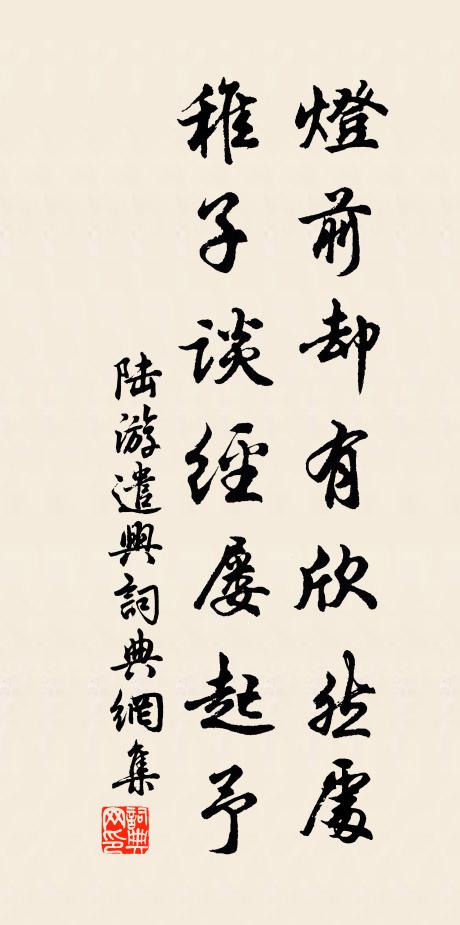 燈前却有欣然處
稚子談經屡起予
陸游遣興詞典網集
詞典网印